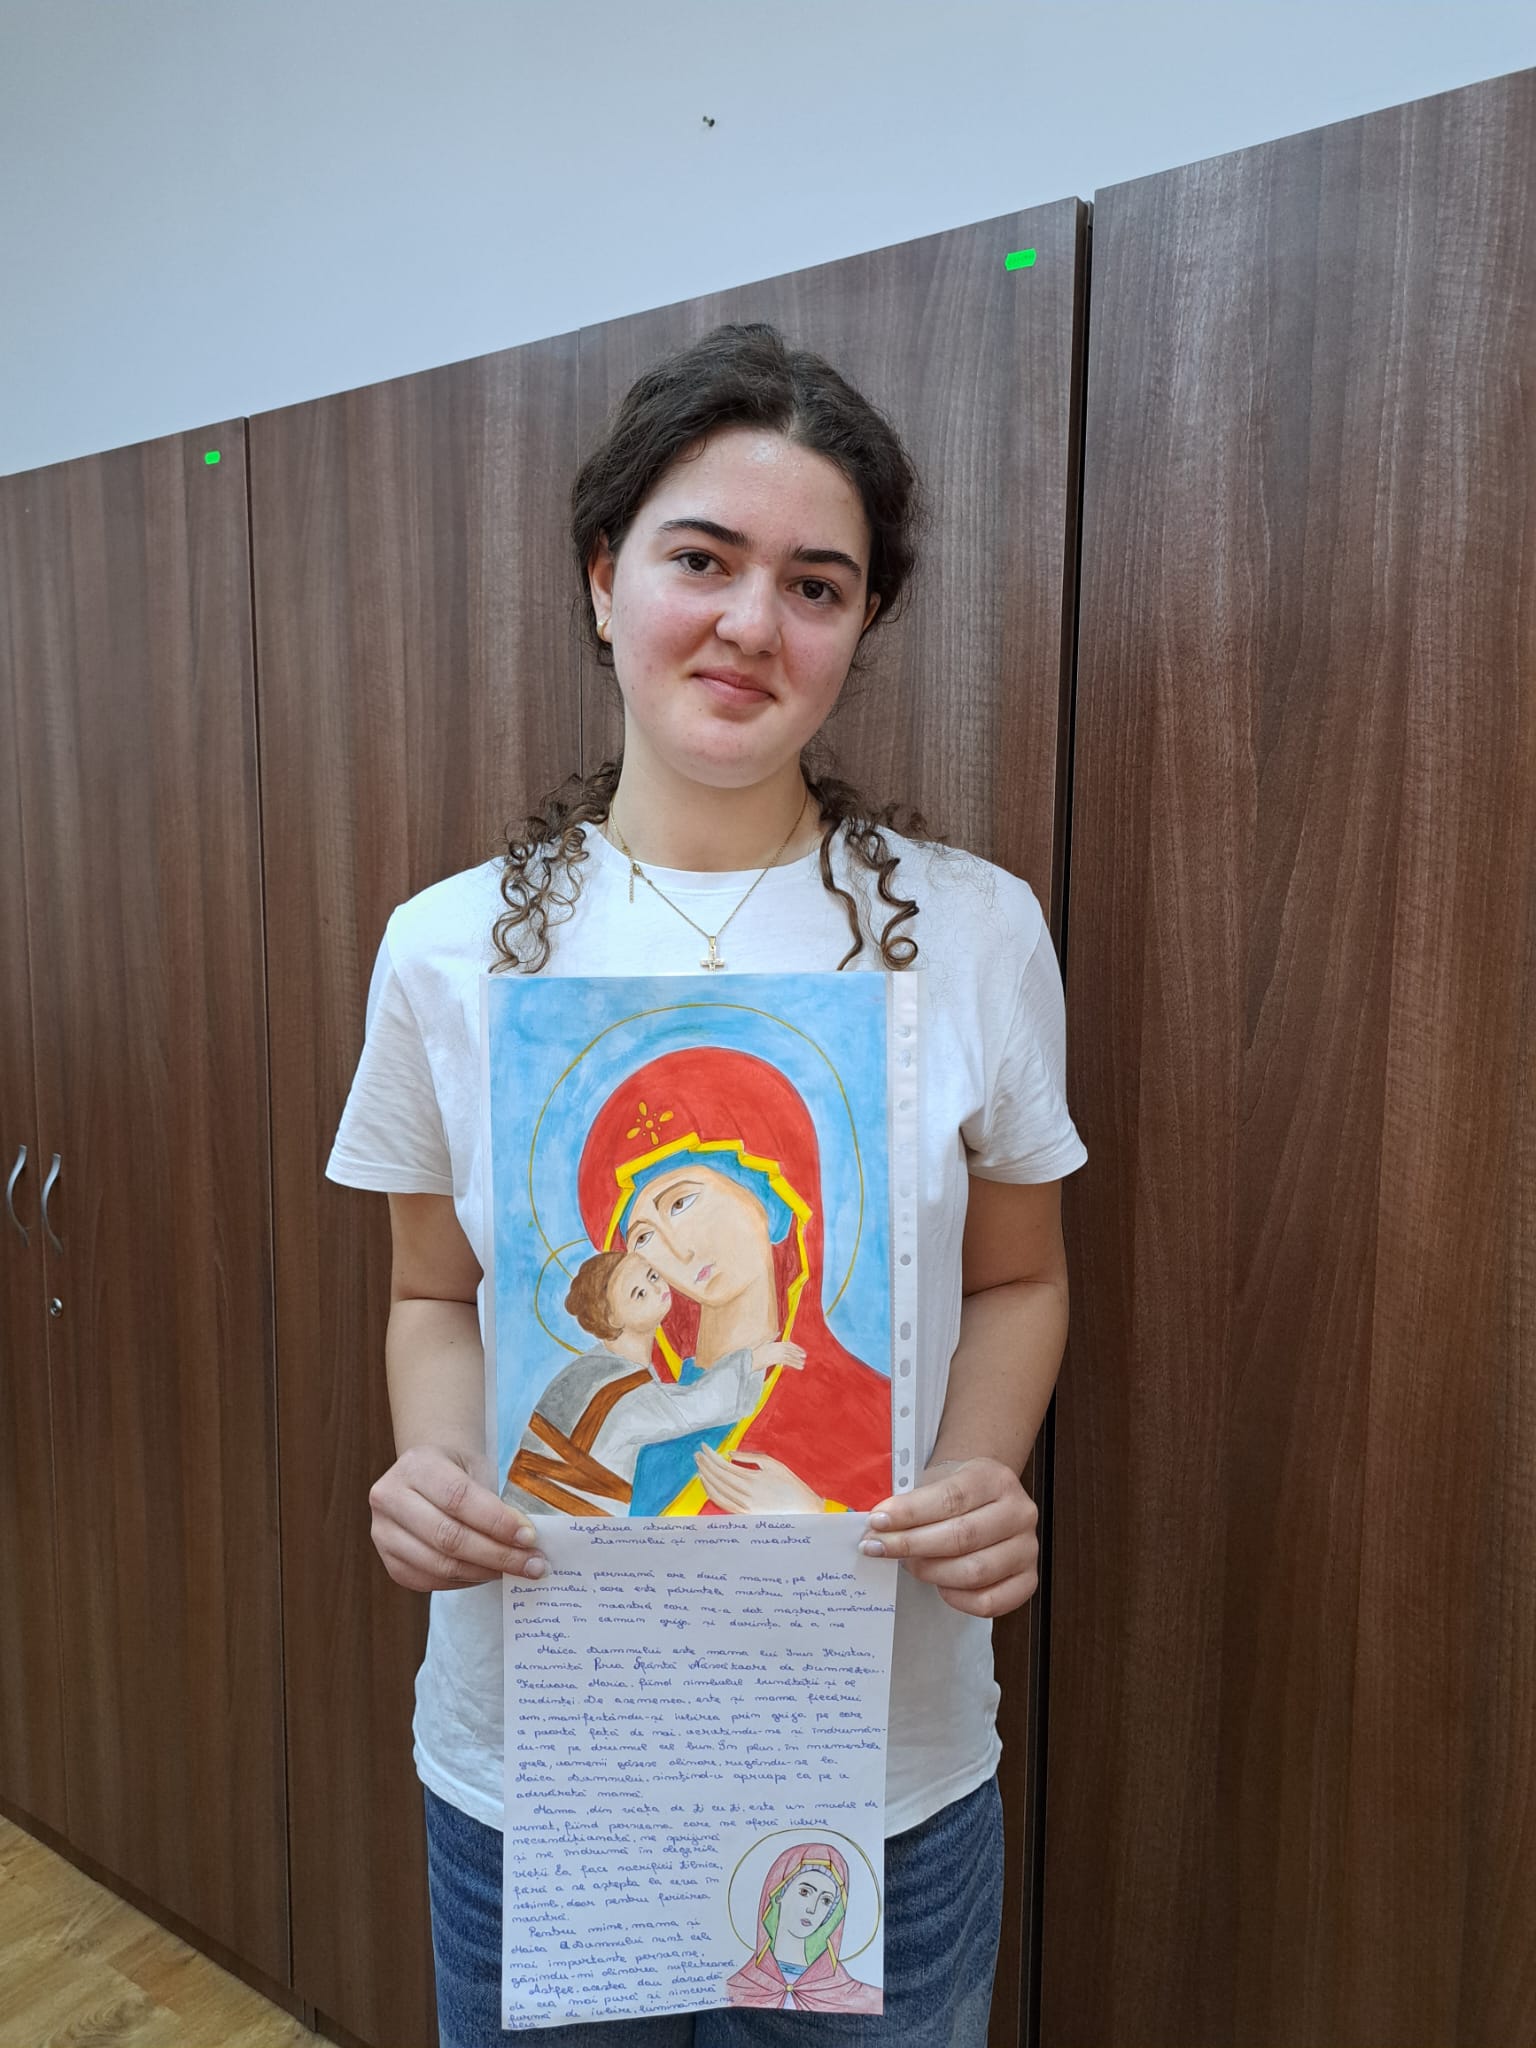 Legătura strânsă dintre Maica
Dumnului și mama noastră
ecare persoană are două mame, pe Maica
Dumnului, care este părintele nostru spiritual, și
pe mama noastră care ne-a dat naștere, amândouă
având în comun grija și dorința de a ne
proteja.
Maica Dumnului este mama lui Isus Hristos,
denumită Prea Sfântă Născătoare de Dumnezeu,
Fecioara Maria, fiind simbolul bunătății și al
credinței. De asemenea, este și mama fiecărui
om, manifestându-și iubirea prin grija pe care
o poartă față de noi, ocrotindu-ne și îndrumân-
du-ne pe drumul cel bun. În plus, în momentele
grele, oamenii găsesc alinare, rugându-se la
Maica Dumnului, simțind-o aproape ca pe o
adevărată mamă.
Mama, din viața de zi cu zi, este un model de
urmat, fiind persoana care ne oferă iubire
necondiționată, ne sprijină
și ne îndrumă în alegerile
vieții. Ea face sacrificii zilnice,
fără a se aștepta la ceva în
schimb, doar pentru fericirea
noastră.
Pentru mine, mama și
Maica Dumnului sunt cele
mai importante persoane,
găsindu-mi alinarea sufletească.
Astfel, acestea dau dovadă
de cea mai pură și sinceră
formă de iubire, luminându-ne